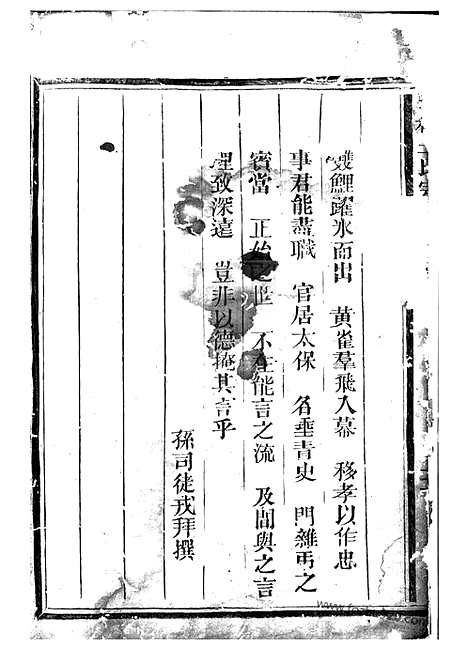 雙鯉躍氷而出 黃雀羣飛入幕 移孝以作忠
事君能盡職 官居太保 名垂青史 門雜丐之
賓當 正始之世 不在能言之流 及間與之言
理致深遠 豈非以德掩其言乎
孫司徒戎拜撰